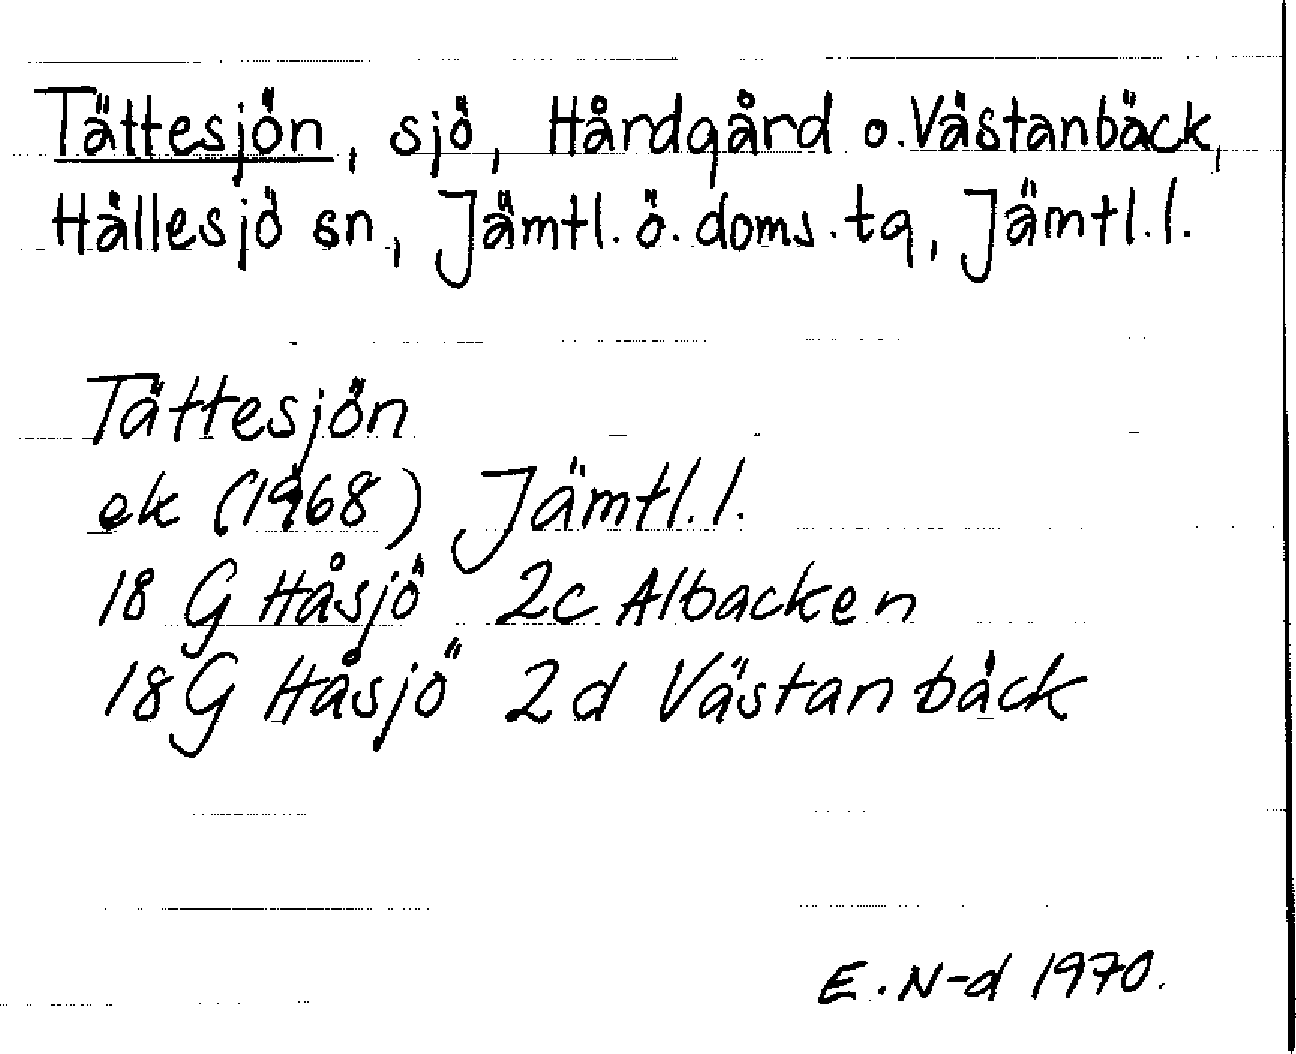 Tättesjön, sjö, Hårdgård o. Västanbäck,
Hällesjö sn, Jämtl. ö. doms. tg, Jämtl. l.
Tättesjön
ek (1968) Jämtl. l.
18 G Håsjö 2c Albacken
18 G Håsjö 2d Västanbäck
E. N-d 1970.